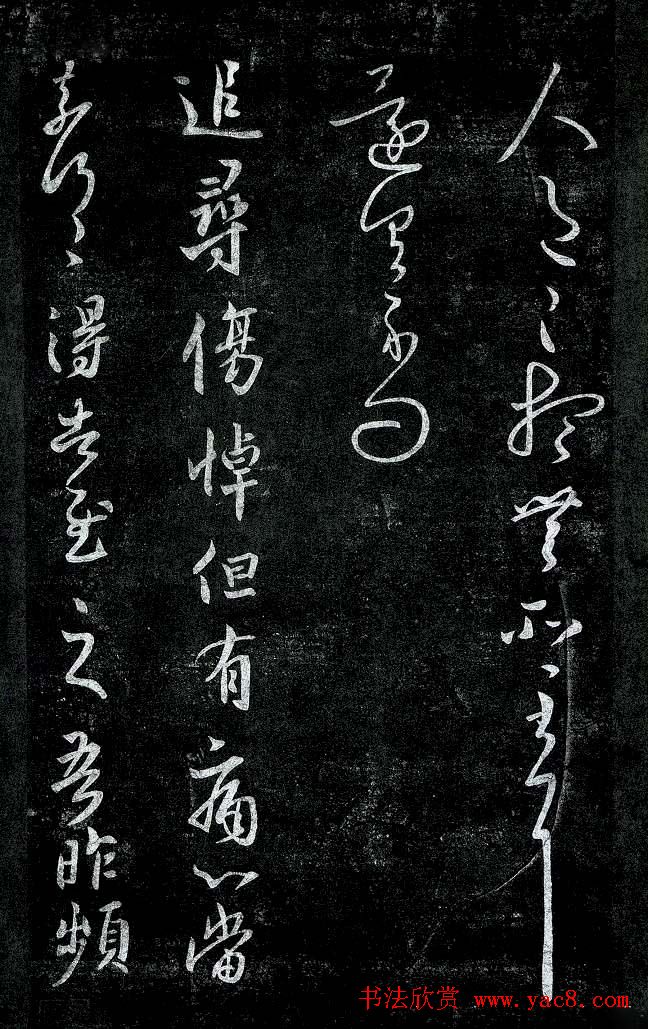 人想無所
具示問
追尋傷悼但有痛心當
奈何〻得告慰之吾昨頻
书法欣赏 www.yac8.com